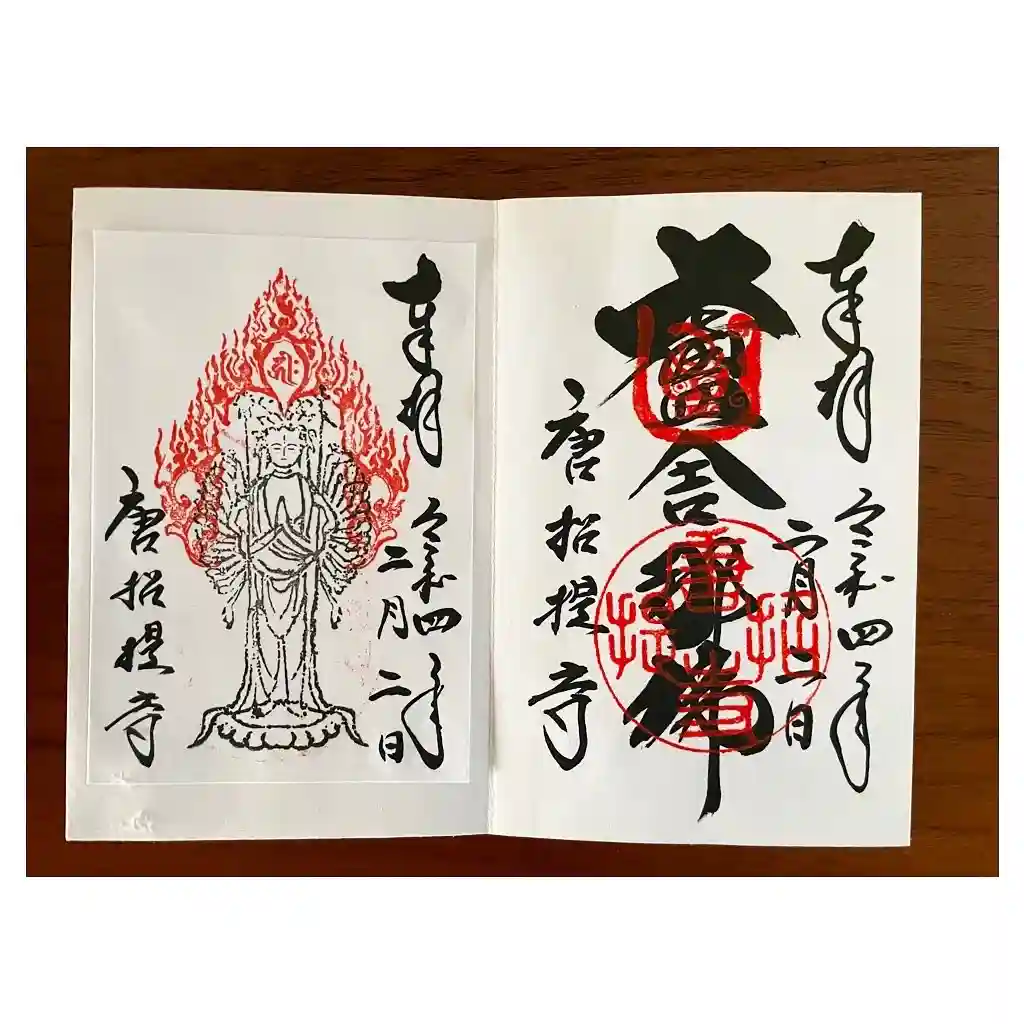 奉拝 令和四年
二月二日
盧舎那佛
唐招提寺
唐招提寺
奉拝 令和四年
二月二日
唐招提寺